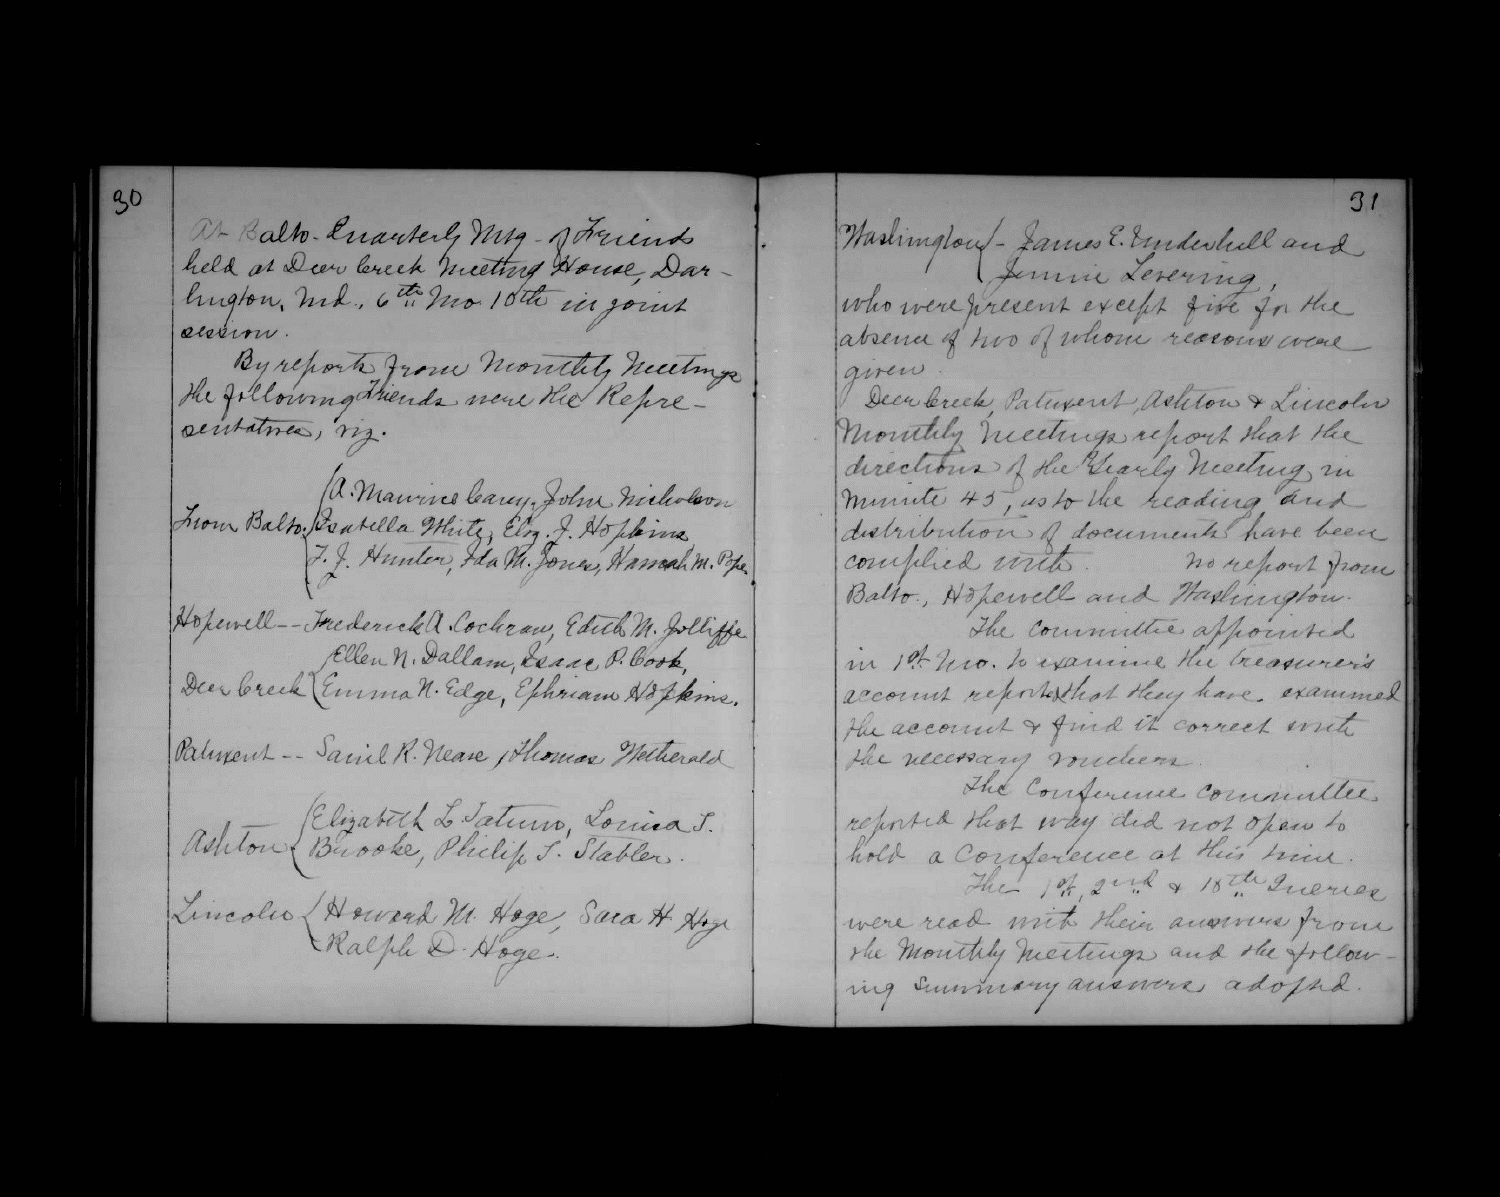 30
At Balto. Quarterly Mtg. of Friends
held at Deer Creek Meeting House, Dar-
lington, Md., 6th Mo. 10th in joint
session.
By reports from Monthly Meetings
the following Friends were the Repre-
sentatives, viz.
A. Maurice Carey, John Nicholson
From Balto. Isabella White, Eliz. J. Hopkins
T. J. Hunter, Ida M. Jones, Hannah M. Pope
Hopewell -- Frederick A. Cochran, Edith M. Jolliffe
Ellen N. Dallam, Isaac P. Cook,
Deer Creek Emma N. Edge, Ephriam Hopkins.
Patuxent -- Saml R. Nease, Thomas Wetherald
Elizabeth L. Tatum, Louisa T.
Ashton Brooke, Philip T. Stabler.
Lincoln Howard M. Hoge, Sara H. Hoge
Ralph D. Hoge.
31
Washington - James E. Underhill and
Jennie Levering,
who were present except five for the
absence of two of whom reasons were
given.
Deer Creek, Patuxent, Ashton & Lincoln
Monthly Meetings report that the
directions of the Yearly Meeting in
Minute 45, as to the reading and
distribution of documents have been
complied with. No report from
Balto., Hopewell and Washington.
The committee appointed
in 1st Mo. to examine the treasurer's
account reports that they have examined
the account & find it correct with
the necessary vouchers.
The Conference committee
reported that way did not open to
hold a Conference at this time.
The 1st, 2nd & 10th Queries
were read with their answers from
the Monthly Meetings and the follow-
ing summary answers adopted.